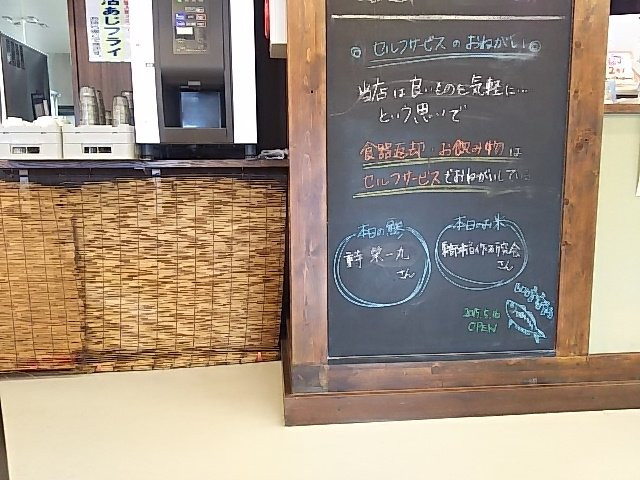 活あじフライ
◎ セルフサービスのおねがい ◎
当店は良いものを気軽に…
という思いで
食器返却 お飲み物は
セルフサービスをおねがいしてい
本日の鯵
栄一丸
さん
本日のお米
研究会
さん
OPEN